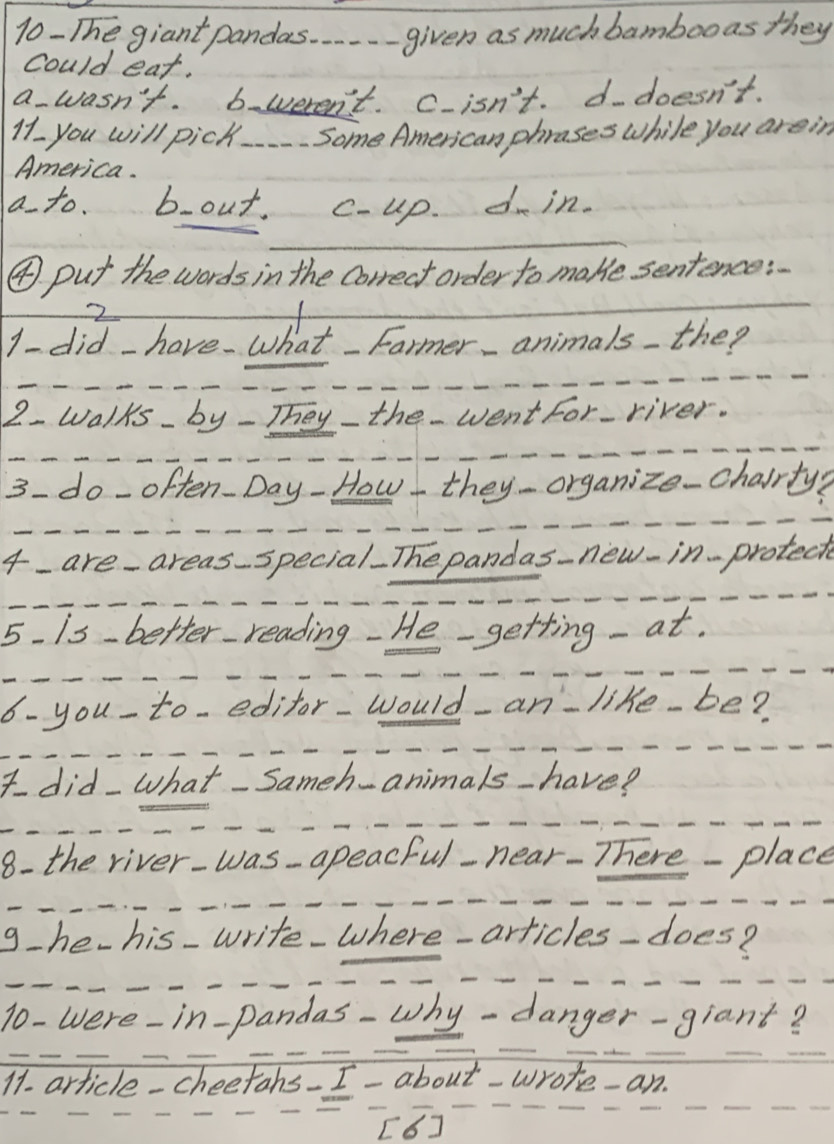 10-The giant pandas......given as much bamboo as they
could eat.
a-wasn't. b-weren't. c-isn't. d-doesn't.
11-you will pick.....some American phrases while you are in
America.
a-to. b-out. c-up. d-in.
④ put the words in the correct order to make sentence:-
2 1
1-did-have-what-Farmer-animals-the?
2-walks-by-They-the-went For-river.
3-do-often-Day-How-they-organize-chairty?
4-are-areas-special-The pandas-new-in-protect
5-is-better-reading-He-getting-at.
6-you-to-editor-would-an-like-be?
7-did-what-Sameh-animals-have?
8-the river-was-apeacful-near-There-place
9-he-his-write-where-articles-does?
10-were-in-pandas-why-danger-giant?
11-article-cheetahs-I-about-wrote-an.
[6]